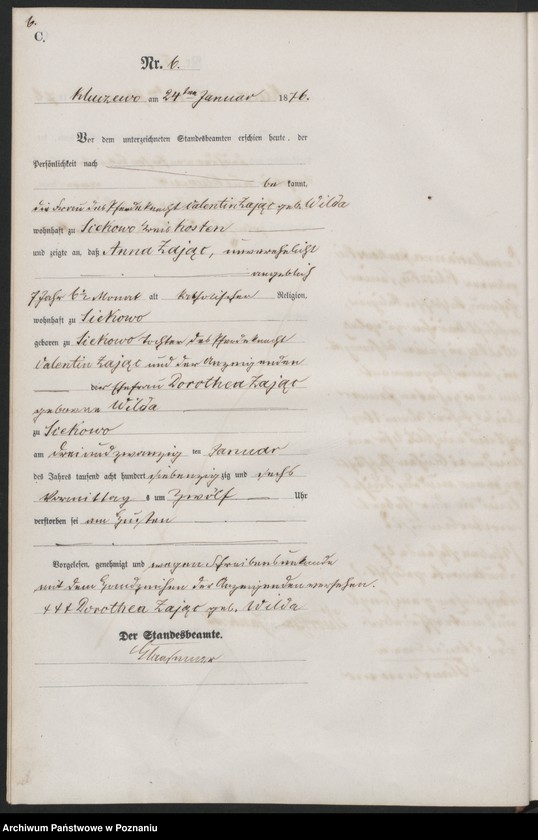 6.
C.
Nr. 6.
Kluczewo am 24ten Januar 1876.
Vor dem unterzeichneten Standesbeamten erschien heute, der
Persönlichkeit nach
be kannt,
die Frau des Pferdeknecht Valentin Zając geb. Wilda
wohnhaft zu Siekowo Kreis Kosten
und zeigte an, daß Anna Zając, unverehelicht
angeblich
7 Jahr 6 Monat alt katholischer Religion,
wohnhaft zu Siekowo
geboren zu Siekowo Tochter des Pferdeknecht
Valentin Zając und der Anzeigenden
der Ehefrau Dorothea Zając
geborene Wilda
zu Siekowo
am dreiundzwanzig ten Januar
des Jahres tausend acht hundert siebenzig zig und sechs
Vormittag s um zwölf Uhr
verstorben sei am Husten
Vorgelesen, genehmigt und wegen Schreibensunkunde
mit dem Handzeichen der Anzeigenden versehen.
+++ Dorothea Zając geb. Wilda
Der Standesbeamte.
Archiwum Państwowe w Poznaniu